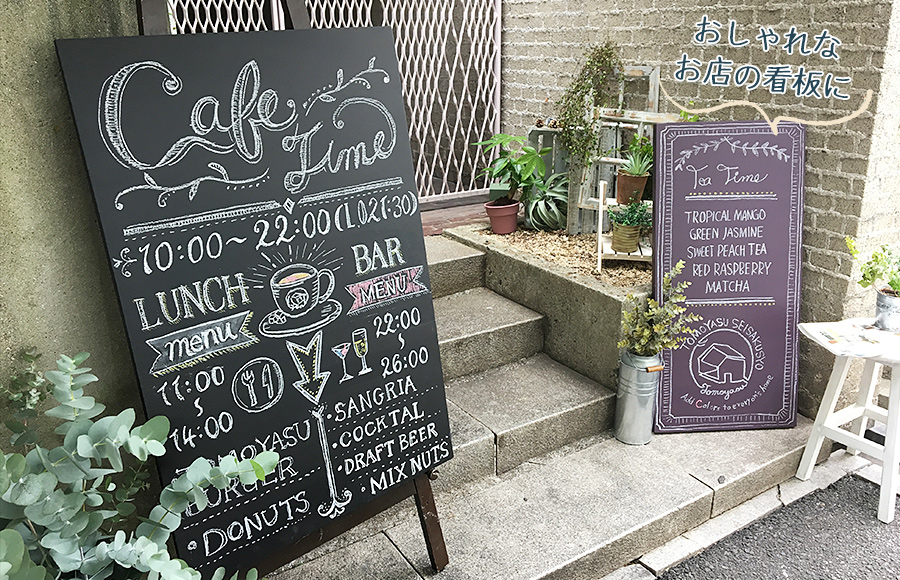 おしゃれな
お店の看板に
Cafe
Time
10:00~22:00(L.O21:30)
LUNCH
menu
11:00
~
14:00
TOMOYASU
BURGER
DONUTS
BAR
MENU
22:00
~
26:00
・SANGRIA
・COCKTAL
・DRAFT BEER
・MIX NUTS
Tea Time
TROPICAL MANGO
GREEN JASMINE
SWEET PEACH TEA
RED RASPBERRY
MATCHA
TOMOYASU SEISAKUSYO
Tomoyasu
Add Colors to everyone's home